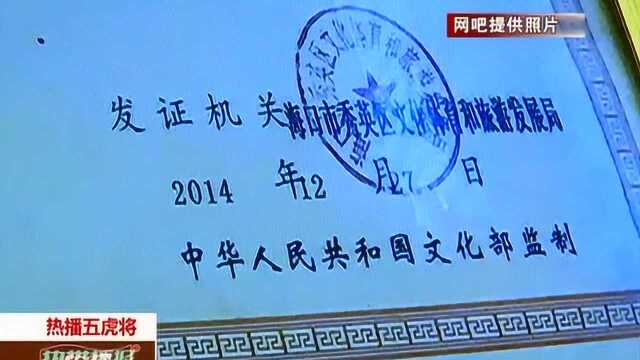 网吧提供照片
发证机关 海口市秀英区文化体育和旅游发展局
2014 年12 月27 日
中华人民共和国文化部监制
热播五虎将
热带播报